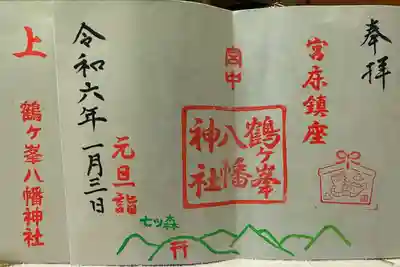 奉拝
宮床鎮座
宮中
鶴ケ峯
八幡
神社
元旦詣
七ツ森
令和六年一月三日
上
鶴ヶ峯八幡神社